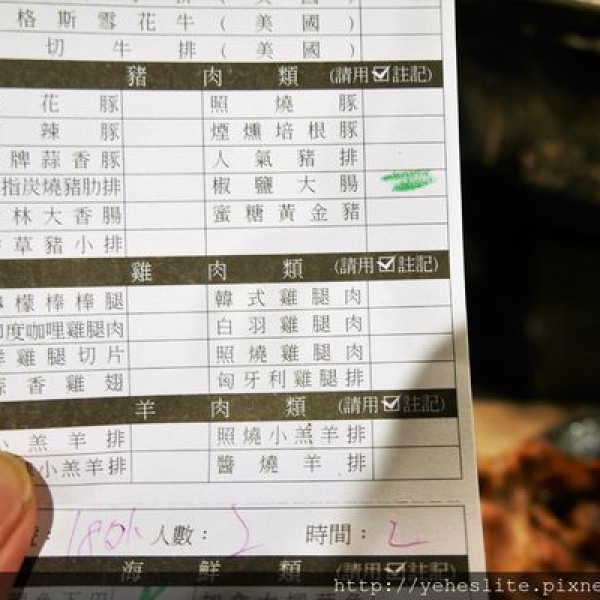 格斯雪花牛(美國)
切牛排(美國)
豬肉類 (請用☑註記)
花豚 照燒豚
辣豚 煙燻培根豚
牌蒜香豚 人氣豬排
指炭燒豬肋排 椒鹽大腸
林大香腸 蜜糖黃金豬
草豬小排
雞肉類 (請用☑註記)
檬棒棒腿 韓式雞腿肉
印度咖哩雞腿肉 白羽雞腿肉
雞腿切片 照燒雞腿肉
香雞翅 匈牙利雞腿排
羊肉類 (請用☑註記)
小羔羊排 照燒小羔羊排
小羔羊排 醬燒羊排
人數： 2 時間： 2
海鮮類 (請用☑註記)
http://yeheslite.pixne